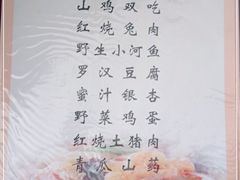 山鸡双吃
红烧兔肉
野生小河鱼
罗汉豆腐
蜜汁银杏
野菜鸡蛋
红烧土猪肉
青瓜山药